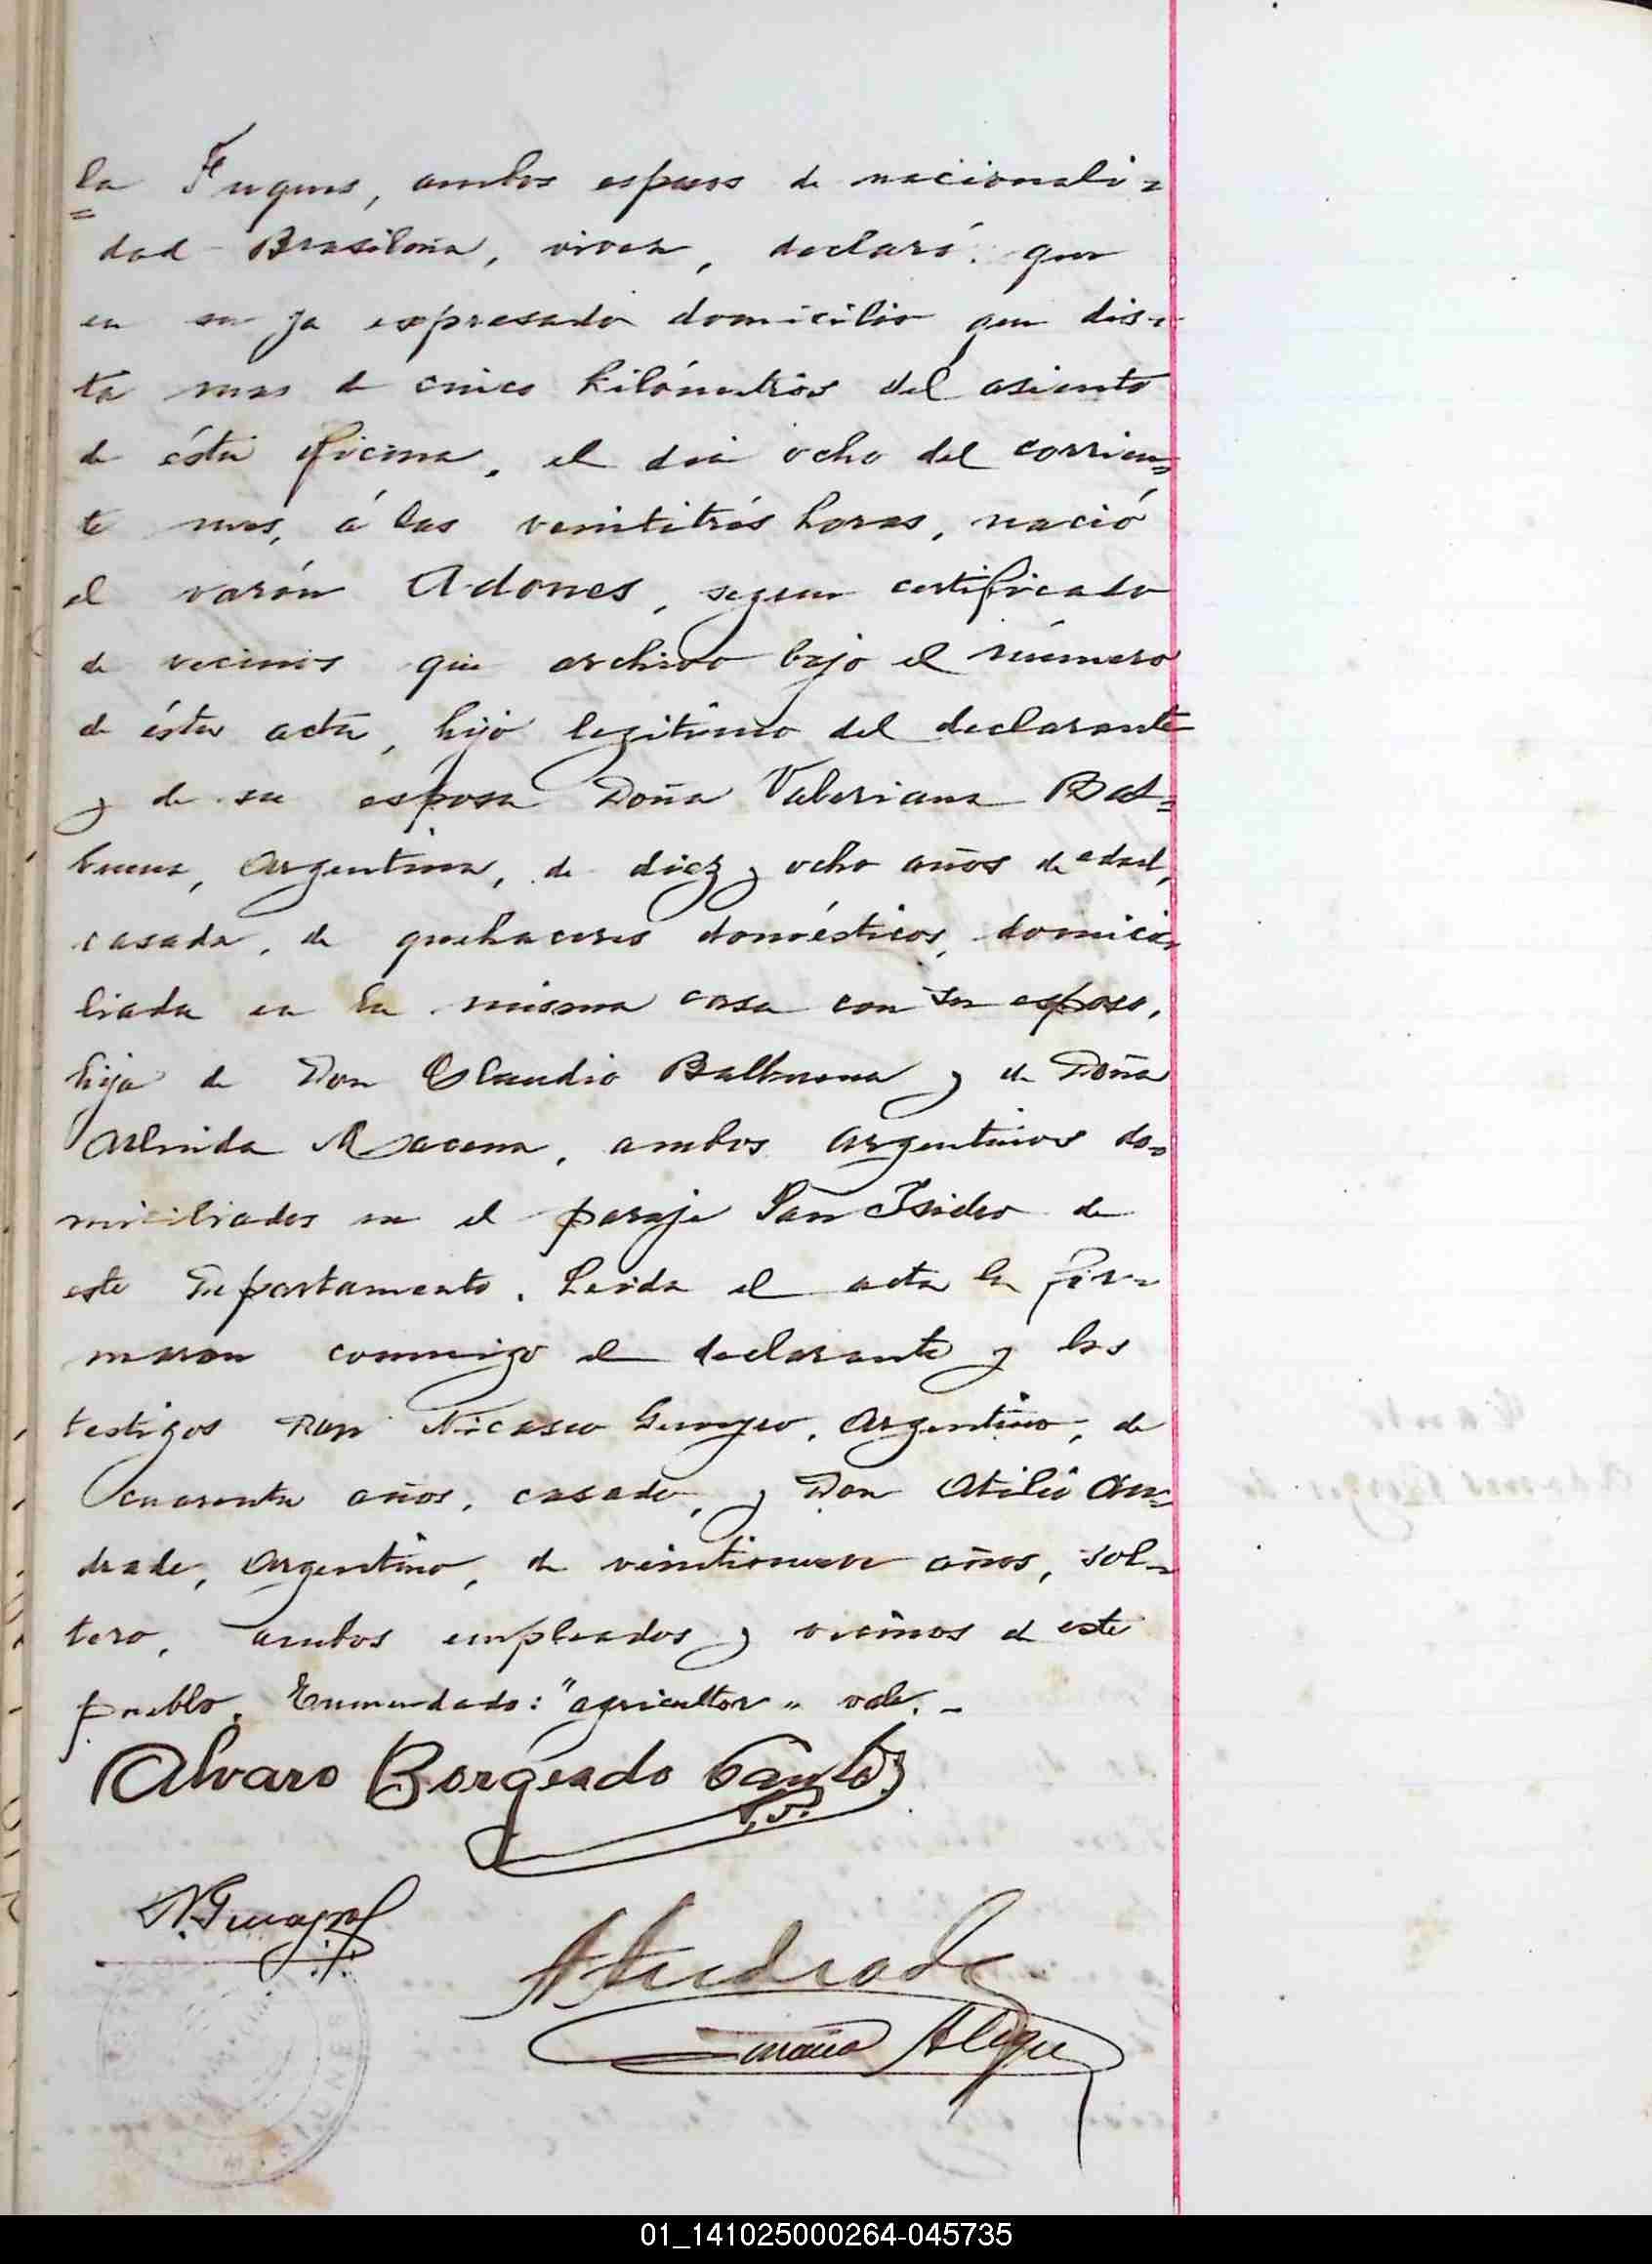 la Fuques, ambos esposos de nacionali=
dad Brasileña, viven, declaró: que
en su ya expresado domicilio que dis-
ta mas de cinco kilómetros del asiento
de ésta oficina, el dia ocho del corrien-
te mes, á las veintitrés horas, nació
el varón Adones, segun certificado
de vecinos que archivo bajo el número
de ésta acta, hijo legitimo del declarante
y de su esposa Doña Valeriana Bal=
buena, Argentina, de diez y ocho años de edad,
casada, de quehaceres domésticos, domici-
liada en la misma casa con su esposo,
hija de Don Claudio Balbuena y de Doña
Arlinda Macena, ambos Argentinos do-
miciliados en el paraje San Isidro de
este Departamento. Leida el acta la fir-
maron conmigo el declarante y los
testigos Don Nicasio, Argentino, de
cuarenta años, casado, y Don Atilio An-
drade, Argentino, de veintinueve años, sol-
tero, ambos empleados y vecinos de este
pueblo. Enmendado: "agricultor" vale.-
Alvaro Borges do Canto
A Andrade
MISIONES
01_141025000264-045735